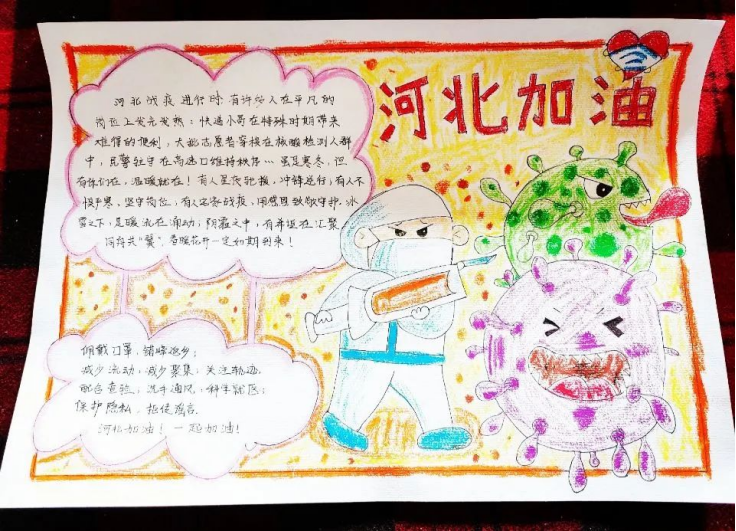 河北加油
河北战疫进行时 有许多人在平凡的
岗位上发光发热：快递小哥在特殊时期带来
难得的便利；大批志愿者穿梭在核酸检测人群
中，民警驻守在高速口维持秩序…虽是寒冬，但
有你们在，温暖就在！有人星夜驰援，冲锋逆行；有人不
惧严寒，坚守岗位，有人
冰
雪之下，是暖流在涌动；阴霾之中，有希望在汇聚
待到春暖花开一定如期到来！
佩戴口罩，错峰返乡；
减少流动，减少聚集；关注轨迹，
配合查验；洗手通风，科学就医；
保护隐私，拒传谣言。
河北加油！一起加油！